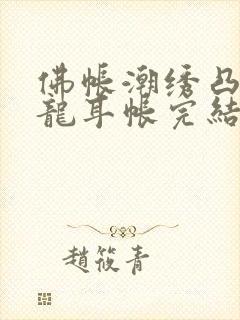 佛帐潮绣凸
龍耳帐完結
趙筱青